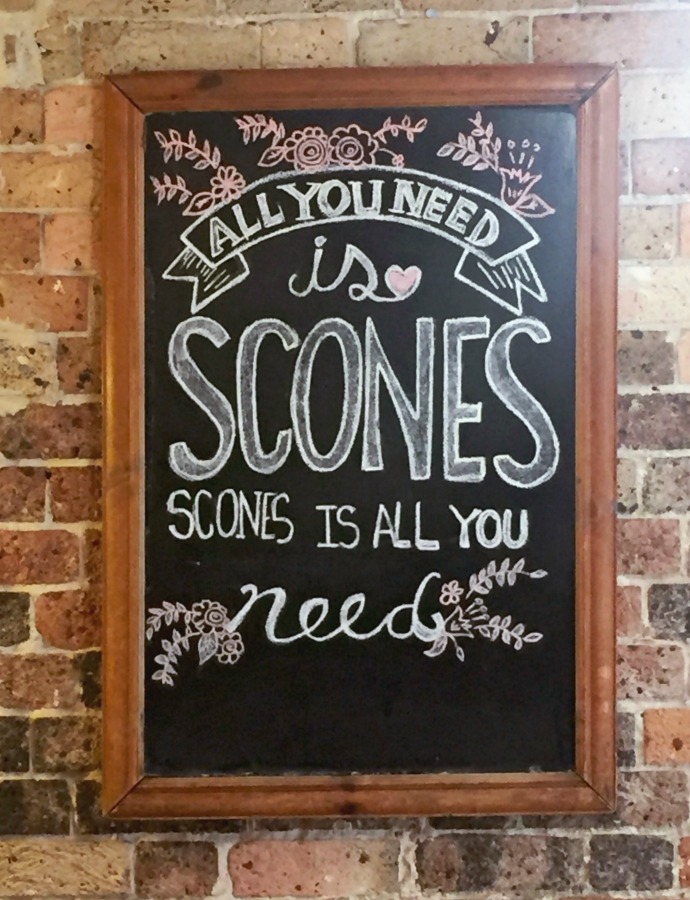 ALL YOU NEED
is
SCONES
SCONES IS ALL YOU
need